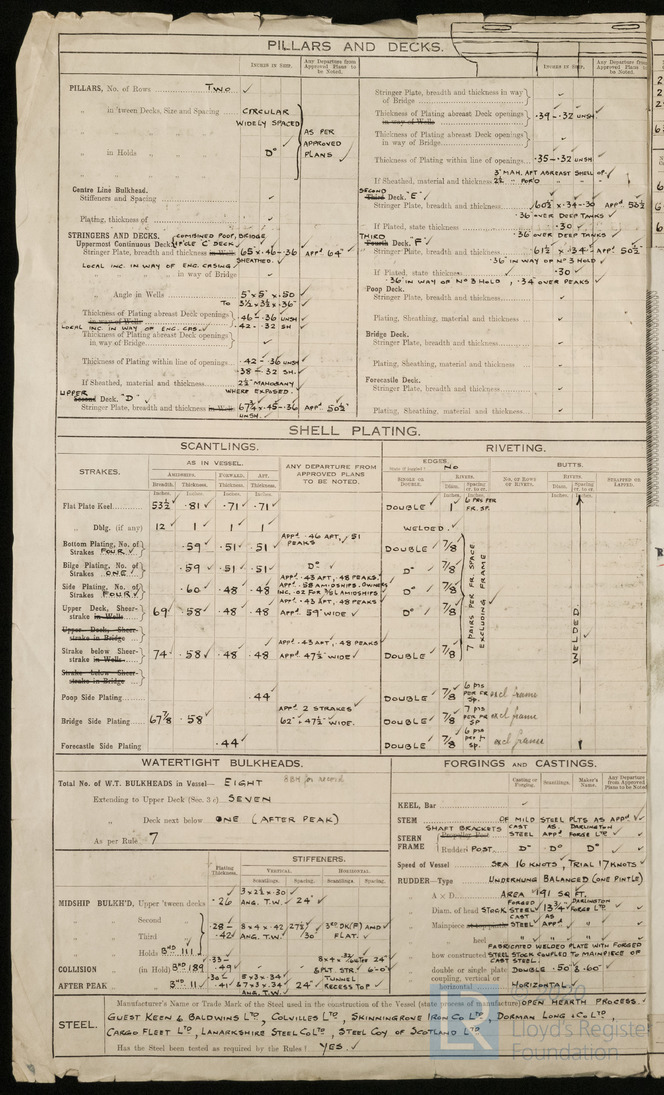 PILLARS AND DECKS.
INCHES IN SHIP.
Any Departure from Approved Plans to be Noted.
PILLARS, No. of Rows TWO ✓
in 'tween Decks, Size and Spacing CIRCULAR
WIDELY SPACED
in Holds Do
AS PER
APPROVED
PLANS ✓
Centre Line Bulkhead.
Stiffeners and Spacing ✓
Plating, thickness of ✓
STRINGERS AND DECKS. COMBINED POOP, BRIDGE
Uppermost Continuous Deck, & F'CLE "C" DECK
Stringer Plate, breadth and thickness in Wells 65 × .46 - .36 APPD 64" ✓
SHEATHED.
LOCAL INC. IN WAY OF ENG. CASING
in way of Bridge ✓
Angle in Wells 5" × 5" × .50
TO 3½ × 3½ × .36"
Thickness of Plating abreast Deck openings in way of Wells .46 - .36 UNSH
LOCAL INC. IN WAY OF ENG. CAS. ✓ .42 - .32 SH
Thickness of Plating abreast Deck openings in way of Bridge ✓
Thickness of Plating within line of openings .42 - .36 UNSH
.38 - .32 SH.
If Sheathed, material and thickness 2½" MAHOGANY
WHERE EXPOSED.
UPPER
Second Deck. "D" ✓
Stringer Plate, breadth and thickness in Wells 67¾ × .45 - .36 APPD 50½"
UNSH.
INCHES IN SHIP.
Stringer Plate, breadth and thickness in way of Bridge ✓
Thickness of Plating abreast Deck openings in way of Wells .39 - .32 UNSH ✓
Thickness of Plating abreast Deck openings in way of Bridge ✓
Thickness of Plating within line of openings .35 - .32 UNSH ✓
3" MAH. AFT ABREAST SHELL OP. ✓
If Sheathed, material and thickness 2½" " FOR'D
SECOND
Third Deck. "E" ✓
Stringer Plate, breadth and thickness 60½ × .34 - .30 APPD 50½
.36 OVER DEEP TANKS ✓
If Plated, state thickness .30 ✓
THIRD .36 OVER DEEP TANKS ✓
Fourth Deck. "F" ✓
Stringer Plate, breadth and thickness 61½ × .34 APPD 50½"
.36 IN WAY OF No 3 HOLD ✓
If Plated, state thickness .30 ✓
.36 IN WAY OF No 3 HOLD, .34 OVER PEAKS ✓
Poop Deck.
Stringer Plate, breadth and thickness ✓
Plating, Sheathing, material and thickness ✓
Bridge Deck.
Stringer Plate, breadth and thickness ✓
Plating, Sheathing, material and thickness ✓
Forecastle Deck.
Stringer Plate, breadth and thickness ✓
Plating, Sheathing, material and thickness ✓
SHELL PLATING.
SCANTLINGS.
STRAKES.
AS IN VESSEL.
AMIDSHIPS. FORWARD. AFT.
Breadth. Thickness. Thickness. Thickness.
Inches. Inches. Inches. Inches.
ANY DEPARTURE FROM APPROVED PLANS TO BE NOTED.
Flat Plate Keel 53½ .81 .71 .71
Dblg. (if any) 12 1 1 1
Bottom Plating, No. of Strakes FOUR ✓ .59 .51 .51 APPD .46 AFT, .51 PEAKS
Bilge Plating, No. of Strakes ONE ✓ .59 .51 .51 Do
Side Plating, No. of Strakes FOUR ✓ .60 .48 .48 APPD .43 AFT, .48 PEAKS. APPD .58 AMIDSHIPS. OWNERS INC. .02 FOR S/SL AMIDSHIPS
Upper Deck, Sheerstrake in Wells 69 .58 .48 .48 APPD .43 AFT, .48 PEAKS APPD 59" WIDE ✓
Upper Deck, Sheerstrake in Bridge
Strake below Sheerstrake in Wells 74 .58 .48 .48 APPD .43 AFT, .48 PEAKS APPD 47½" WIDE ✓
Strake below Sheerstrake in Bridge
Poop Side Plating .44
Bridge Side Plating 67⅞ .58 APPD 2 STRAKES 62" + 47½" WIDE.
Forecastle Side Plating .44
RIVETING.
EDGES.
State if joggled? No
SINGLE OR DOUBLE.
RIVETS.
Diam. Spacing cr. to cr.
BUTTS.
NO. OF ROWS OF RIVETS.
RIVETS.
Diam. Spacing cr. to cr.
STRAPPED OR LAPPED.
DOUBLE ✓ 1 6 PRS PER FR. SP.
WELDED.
DOUBLE 7/8
Do 7/8
Do 7/8
Do 7/8
DOUBLE ✓ 7/8
7 PAIRS PER FR. SPACE
EXCLUDING FRAME
WELDED
DOUBLE ✓ 7/8 6 prs PER FR SP. excl frame
DOUBLE ✓ 7/8 7 prs PER FR SP excl frame
DOUBLE ✓ 7/8 6 prs per fr. sp. excl frame
WATERTIGHT BULKHEADS.
Total No. of W.T. BULKHEADS in Vessel— EIGHT
Extending to Upper Deck (Sec. 3 c) SEVEN
Deck next below ONE (AFTER PEAK)
As per Rule 7
Plating Thickness.
STIFFENERS.
VERTICAL. HORIZONTAL.
Scantlings. Spacing. Scantlings. Spacing.
MIDSHIP BULK'D, Upper 'tween decks .26 3 × 2½ × .30 ANG. T.W. 24"
Second .28 8 × 4 × .42 27½ 3RD DK (F) AND
Third .42 ANG. T.W. 30 FLAT.
Holds BHD 111
COLLISION (in Hold) BHD 189 .33 - .49 24"
& PLT. STR. 6'-0"
AFTER PEAK BHD 11 .30 - .41 5 × 3 × .34 & 7 × 3 × .34 ANG T.W. 24" TUNNEL RECESS TOP
FORGINGS AND CASTINGS.
Casting or Forging. Scantlings. Maker's Name. Any Departure from Approved Plans to be Noted
KEEL, Bar ✓
STEM OF MILD STEEL PLTS AS APPD ✓
STERN FRAME SHAFT BRACKETS Propeller Post CAST STEEL AS APPD DARLINGTON FORGE LTD
Rudder POST Do Do Do
Speed of Vessel SEA 16 KNOTS, TRIAL 17 KNOTS ✓
RUDDER—Type UNDERHUNG BALANCED (ONE PINTLE)
A × D AREA 191 SQ. FT.
Diam. of head STOCK FORGED STEEL 13¾" DARLINGTON FORGE LTD
Mainpiece CAST STEEL AS APPD
heel
FABRICATED WELDED PLATE WITH FORGED
how constructed STEEL STOCK COUPLED TO MAINPIECE OF
CAST STEEL.
double or single plate DOUBLE .50" & .60" ✓
coupling, vertical or horizontal HORIZONTAL ✓
STEEL.
Manufacturer's Name or Trade Mark of the Steel used in the construction of the Vessel (state process of manufacture) OPEN HEARTH PROCESS. ✓
GUEST KEEN & BALDWINS LTD, COLVILLES LTD, SKINNINGROVE IRON CO LTD, DORMAN LONG & CO LTD,
CARGO FLEET LTD, LANARKSHIRE STEEL CO LTD, STEEL COY OF SCOTLAND LTD
Has the Steel been tested as required by the Rules? YES. ✓
Lloyd's Register
Foundation